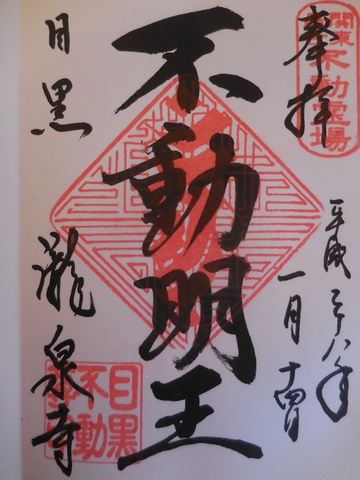 奉拝
関東不動霊場
平成二十八年
一月十四日
不動明王
目黒
瀧泉寺
目黒
不動